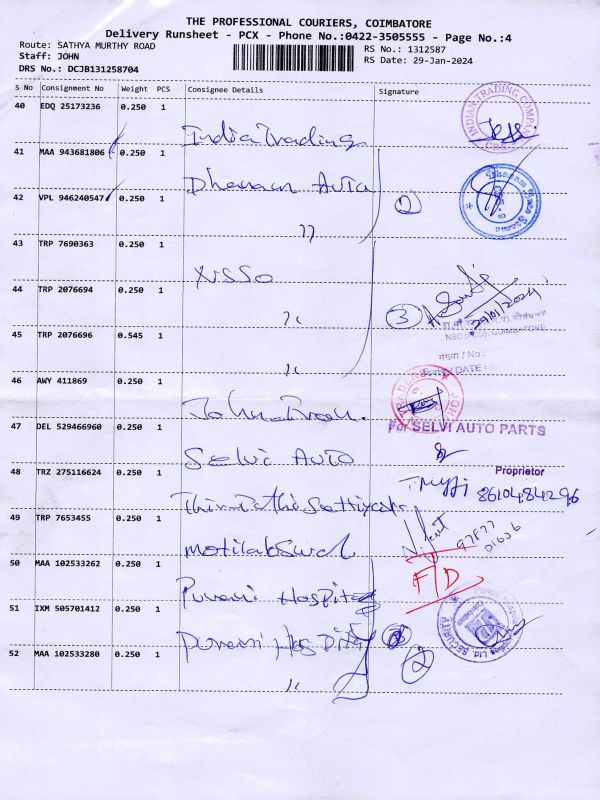 THE PROFESSIONAL COURIERS, COIMBATORE
Delivery Runsheet - PCX - Phone No.:0422-3505555 - Page No.:4
Route: SATHYA MURTHY ROAD
RS No.: 1312587
Staff: JOHN
RS Date: 29-Jan-2024
DRS No.: DCJB131258704
S No Consignment No Weight PCS Consignee Details Signature
40 EDQ 25173236 0.250 1
India Trading
INDIAN TRADING COMPANY
41 MAA 943681806 0.250 1
Dhanam Auto
42 VPL 946240547 0.250 1
"
2
43 TRP 7690363 0.250 1
44 TRP 2076694 0.250 1
"
3
29/01/2024
45 TRP 2076696 0.545 1
"
संख्या / No :
/ DATE :
46 AWY 411869 0.250 1
47 DEL 529466960 0.250 1
For SELVI AUTO PARTS
Selvi Auto
Proprietor
48 TRZ 275116624 0.250 1
8610484296
49 TRP 7653455 0.250 1
97877
01606
50 MAA 102533262 0.250 1
FD
Purani Hospital
51 IXM 505701412 0.250 1
Purani Hospital
SECURITY
52 MAA 102533280 0.250 1
"
2